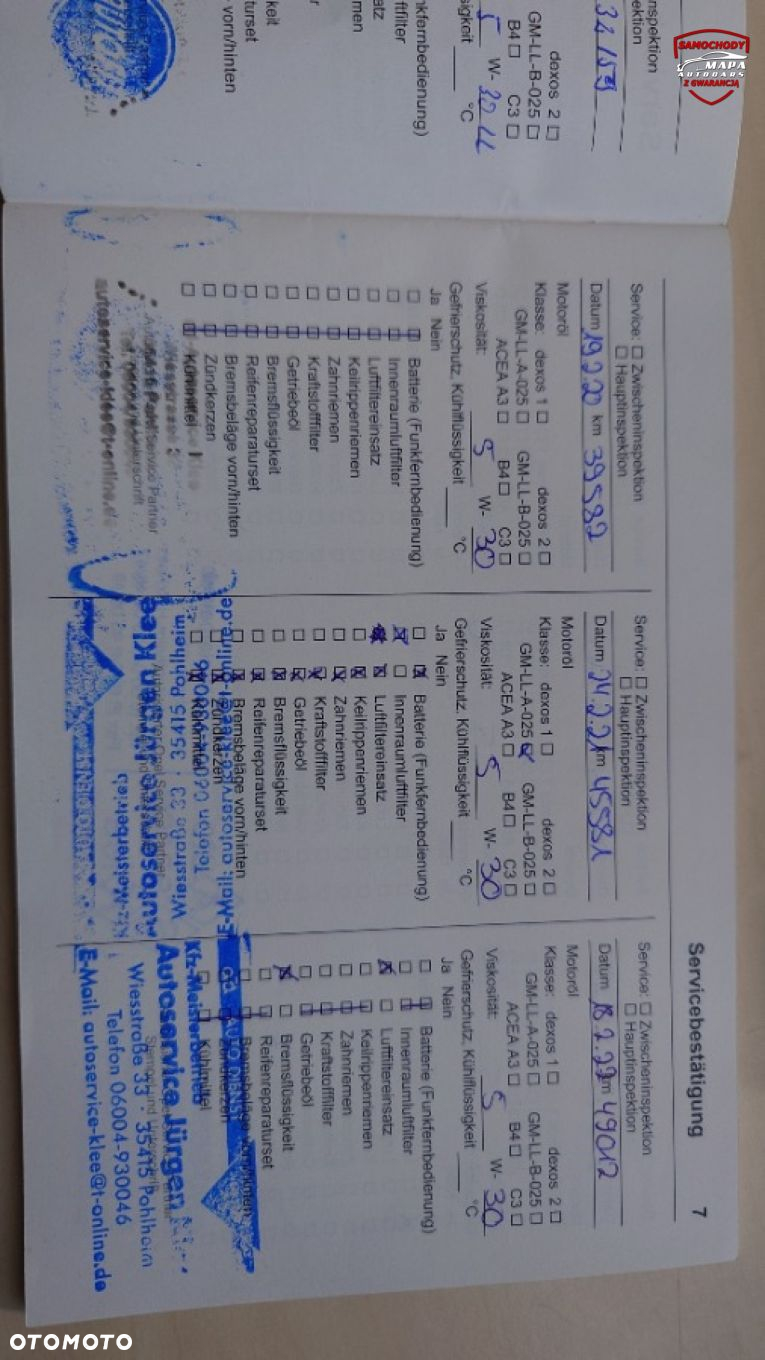 SAMOCHODY
MAPA
AUTODARS
Z GWARANCJĄ
dexos 2 □
GM-LL-B-025 □
B4 □ C3 □
5 W- 30
°C
nkfernbedienung)
vorn/hinten
Servicebestätigung 7
Service: □ Zwischeninspektion
□ Hauptinspektion
Datum 19 2 20 km 39582
Motoröl
Klasse: dexos 1 □ dexos 2 □
GM-LL-A-025 □ GM-LL-B-025 □
ACEA A3 □ B4 □ C3 □
Viskosität: 5 W- 30
Gefrierschutz, Kühlflüssigkeit ____ °C
Ja Nein
Batterie (Funkfernbedienung)
Innenraumluftfilter
Luftfiltereinsatz
Keilrippenriemen
Zahnriemen
Kraftstofffilter
Getriebeöl
Bremsflüssigkeit
Reifenreparaturset
Bremsbeläge vorn/hinten
Zündkerzen
Kühlmittel
autoservice-klee@t-online.de
Service: □ Zwischeninspektion
□ Hauptinspektion
Datum 24.2.21 km 45581
Motoröl
Klasse: dexos 1 □ dexos 2 □
GM-LL-A-025 ☒ GM-LL-B-025 □
ACEA A3 □ B4 □ C3 □
Viskosität: 5 W- 30
Gefrierschutz, Kühlflüssigkeit ____ °C
Ja Nein
Batterie (Funkfernbedienung)
Innenraumluftfilter
Luftfiltereinsatz
Keilrippenriemen
Zahnriemen
Kraftstofffilter
Getriebeöl
Bremsflüssigkeit
Reifenreparaturset
Bremsbeläge vorn/hinten
Zündkerzen
Kühlmittel
Kfz-Meisterbetrieb
Autoservice Jürgen Klee
Wiesstraße 33 · 35415 Pohlheim
Telefon 06004-930046
E-Mail: autoservice-klee@t-online.de
Service: □ Zwischeninspektion
□ Hauptinspektion
Datum 18.2.22 km 49012
Motoröl
Klasse: dexos 1 □ dexos 2 □
GM-LL-A-025 □ GM-LL-B-025 □
ACEA A3 □ B4 □ C3 □
Viskosität: 5 W- 30
Gefrierschutz, Kühlflüssigkeit ____ °C
Ja Nein
Batterie (Funkfernbedienung)
Innenraumluftfilter
Luftfiltereinsatz
Keilrippenriemen
Zahnriemen
Kraftstofffilter
Getriebeöl
Bremsflüssigkeit
Reifenreparaturset
Bremsbeläge vorn/hinten
Zündkerzen
Kühlmittel
AUTODIENST
Kfz-Meisterbetrieb
Autoservice Jürgen
Wiesstraße 33 · 35415 Pohlheim
Telefon 06004-930046
E-Mail: autoservice-klee@t-online.de
OTOMOTO